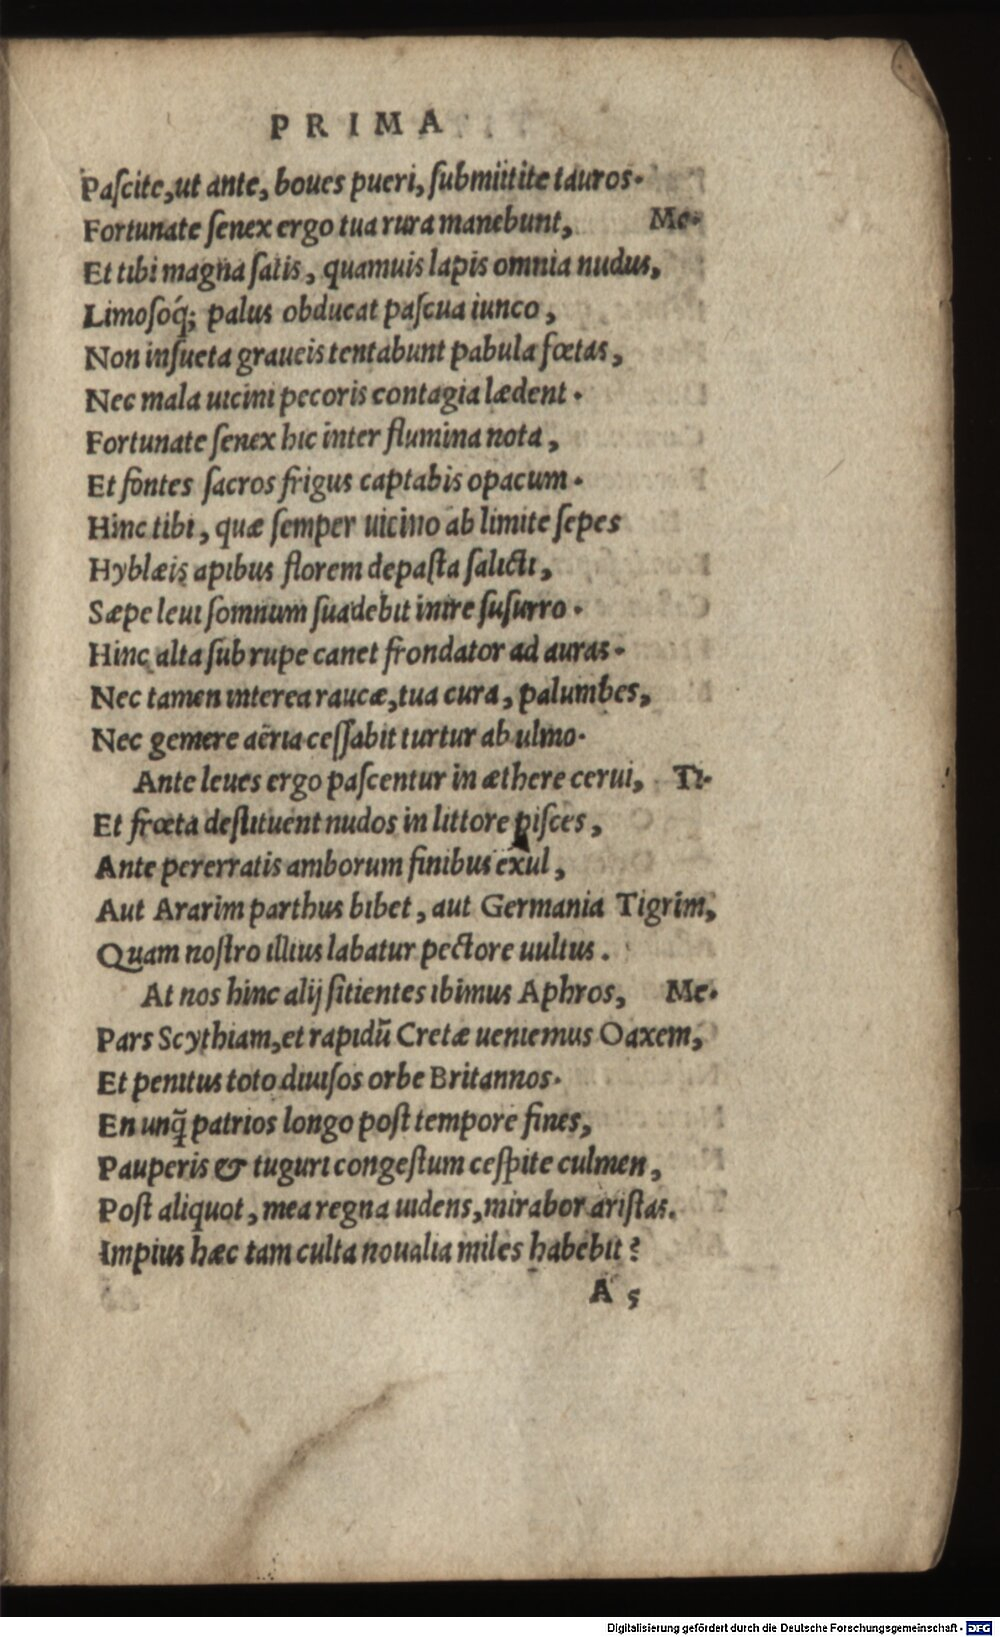 PRIMA
Paſcite, ut ante, boues pueri, ſubmittite tauros.
Fortunate ſenex ergo tua rura manebunt, Me.
Et tibi magna ſatis, quamuis lapis omnia nudus,
Limoſoq́; palus obducat paſcua iunco,
Non inſueta graueis tentabunt pabula fœtas,
Nec mala uicini pecoris contagia lædent.
Fortunate ſenex hic inter flumina nota,
Et fontes ſacros frigus captabis opacum.
Hinc tibi, quæ ſemper uicino ab limite ſepes
Hyblæis apibus florem depaſta ſalicti,
Sæpe leui ſomnum ſuadebit inire ſuſurro.
Hinc alta ſub rupe canet frondator ad auras.
Nec tamen interea raucæ, tua cura, palumbes,
Nec gemere aëria ceſſabit turtur ab ulmo.
Ante leues ergo paſcentur in æthere cerui, Ti.
Et frœta deſtituent nudos in littore piſces,
Ante pererratis amborum finibus exul,
Aut Ararim parthus bibet, aut Germania Tigrim,
Quam noſtro illius labatur pectore uultus.
At nos hinc alij ſitientes ibimus Aphros, Me.
Pars Scythiam, et rapidū Cretæ ueniemus Oaxem,
Et penitus toto diuiſos orbe Britannos.
En unq̃ patrios longo poſt tempore fines,
Pauperis & tuguri congeſtum ceſpite culmen,
Poſt aliquot, mea regna uidens, mirabor ariſtas.
Impius hæc tam culta noualia miles habebit?
A 5
Digitalisierung gefördert durch die Deutsche Forschungsgemeinschaft - DFG